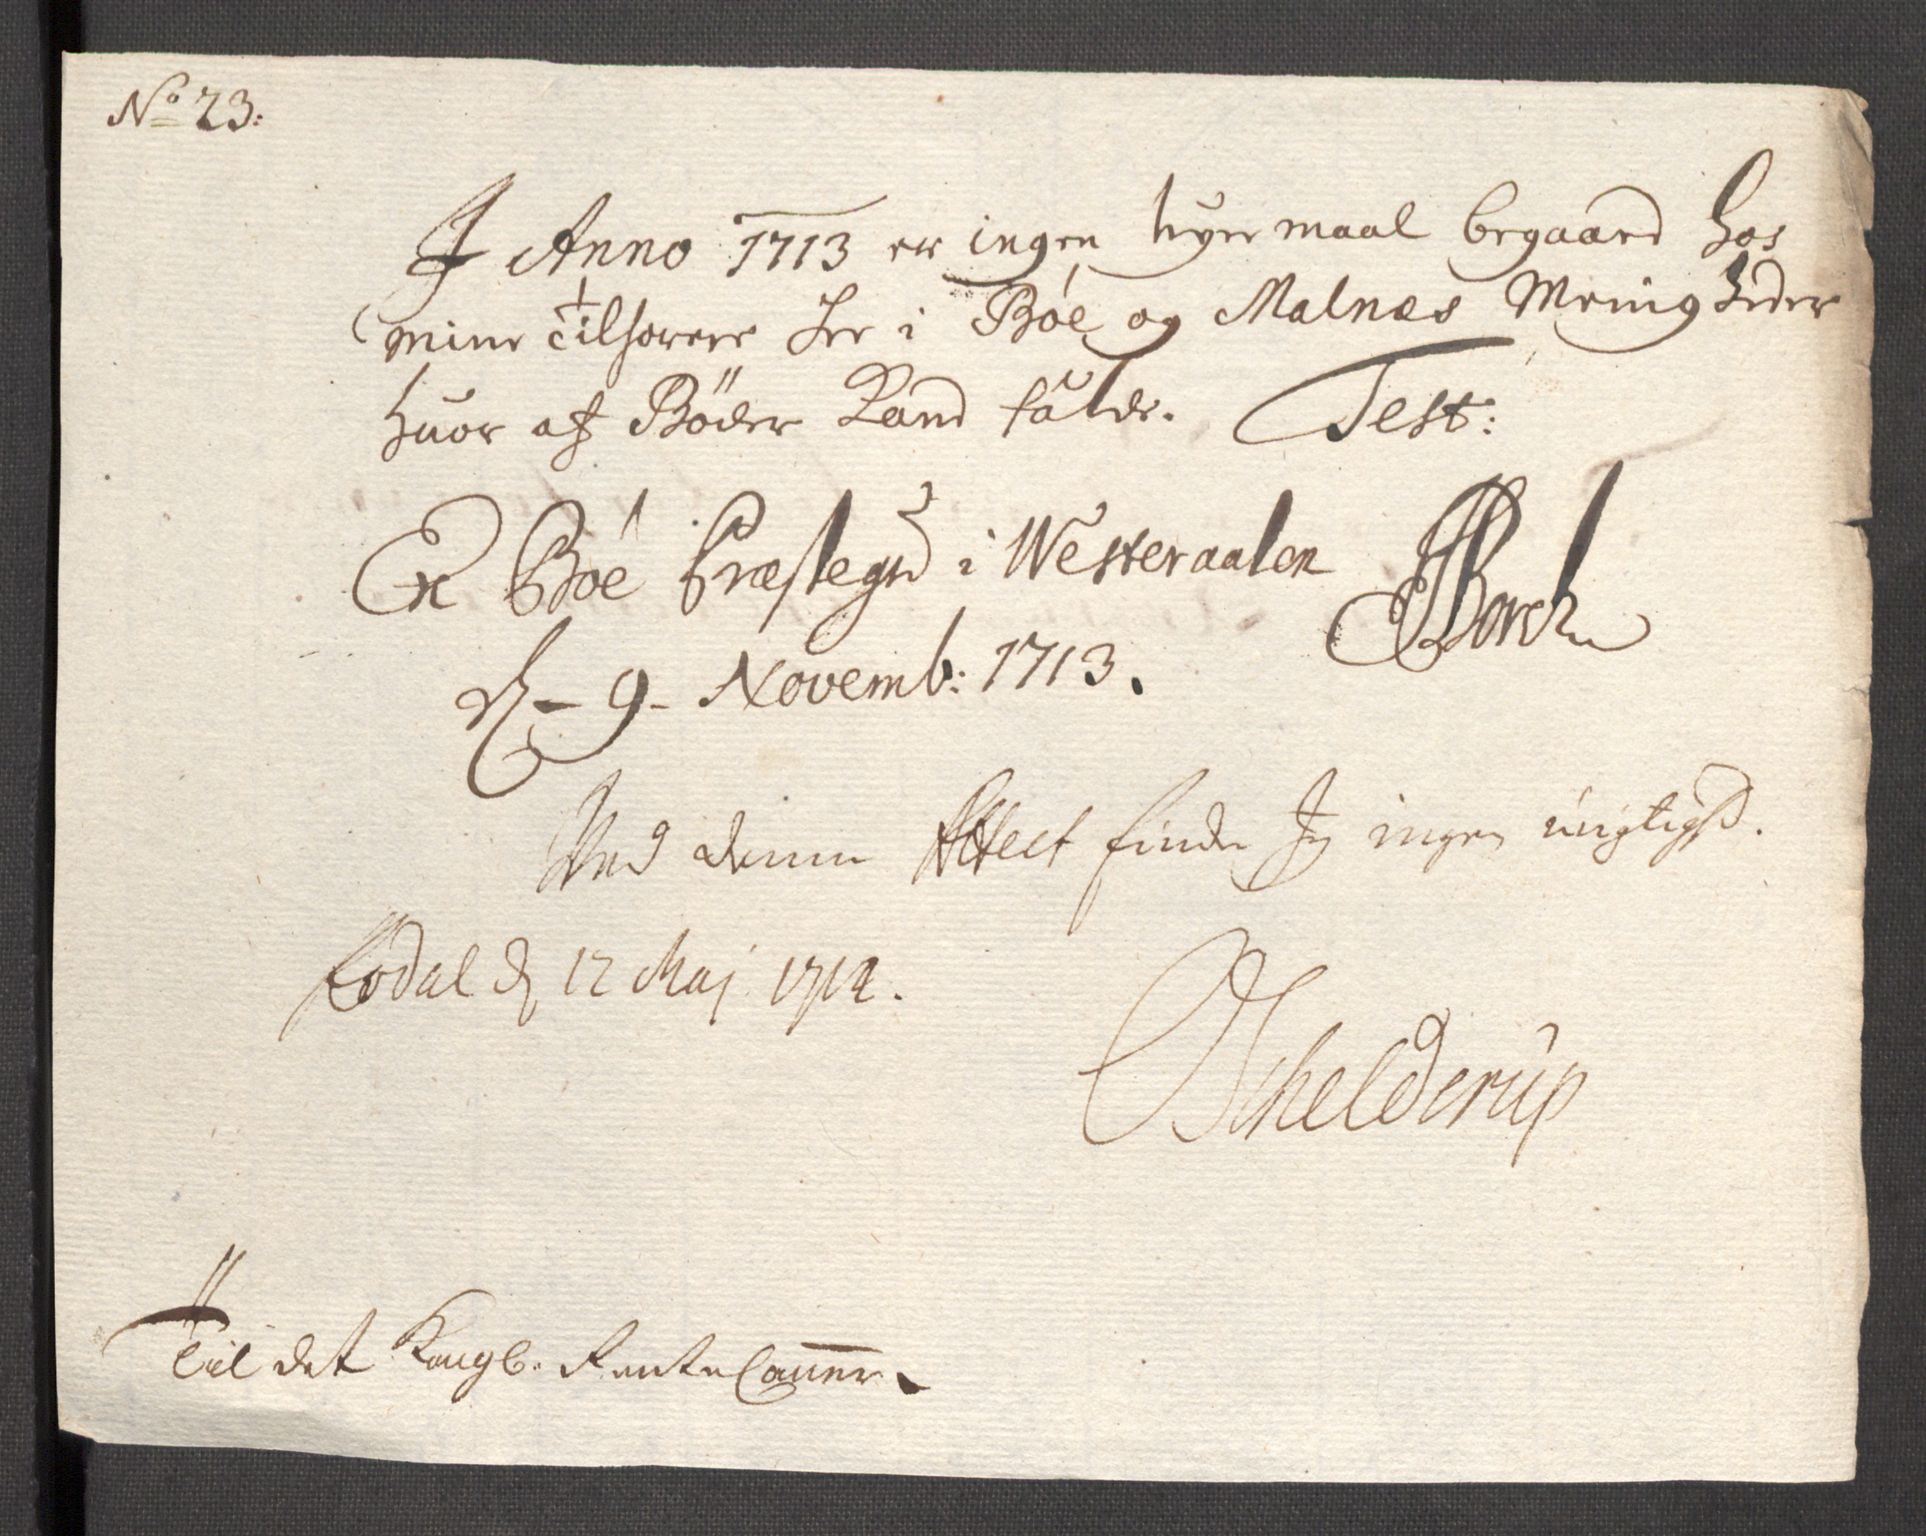 No 23:
I Anno 1713 er ingen leyermaal begaaed hos
mine Tilhørere her i Böe og Malnæs Menigheder
huor af Böder Kand falde. Test:
Ex Böe Præstegrd i Westeraalen
JBorch
d - 9 - Novemb: 1713.
Ved denne Attest finder Jeg ingen urigtighd.
d 12 Maj 1714.
Schelderup
Til det Kongl: RenteCamer.